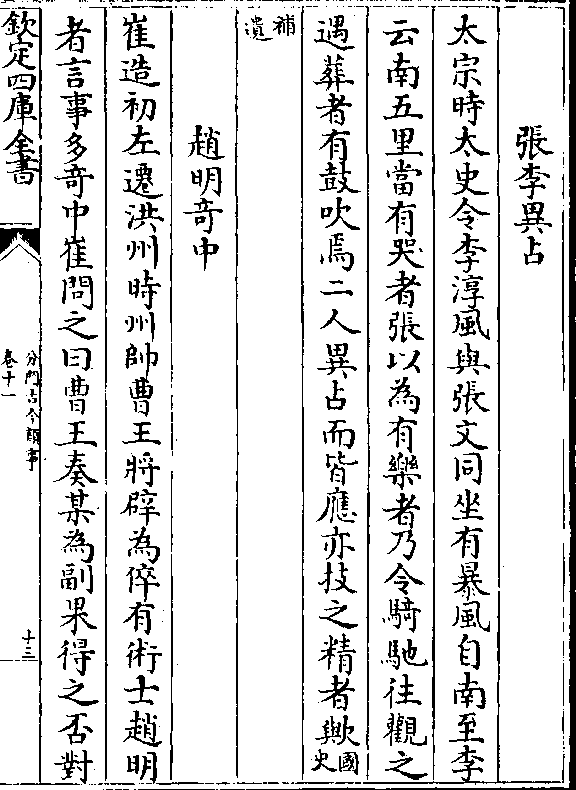 張李異占
太宗時太史令李淳風與張文同坐有暴風自南至李
云南五里當有哭者張以為有樂者乃令騎馳往觀之
遇葬者有鼓吹焉二人異占而皆應亦技之精者歟國史
補遺
趙明竒中
崔造初左遷洪州時州帥曹王將辟為倅有術士趙明
者言事多竒中崔問之曰曹王奏某為副果得之否對
欽定四庫全書
分門古今類事
卷十一
十三